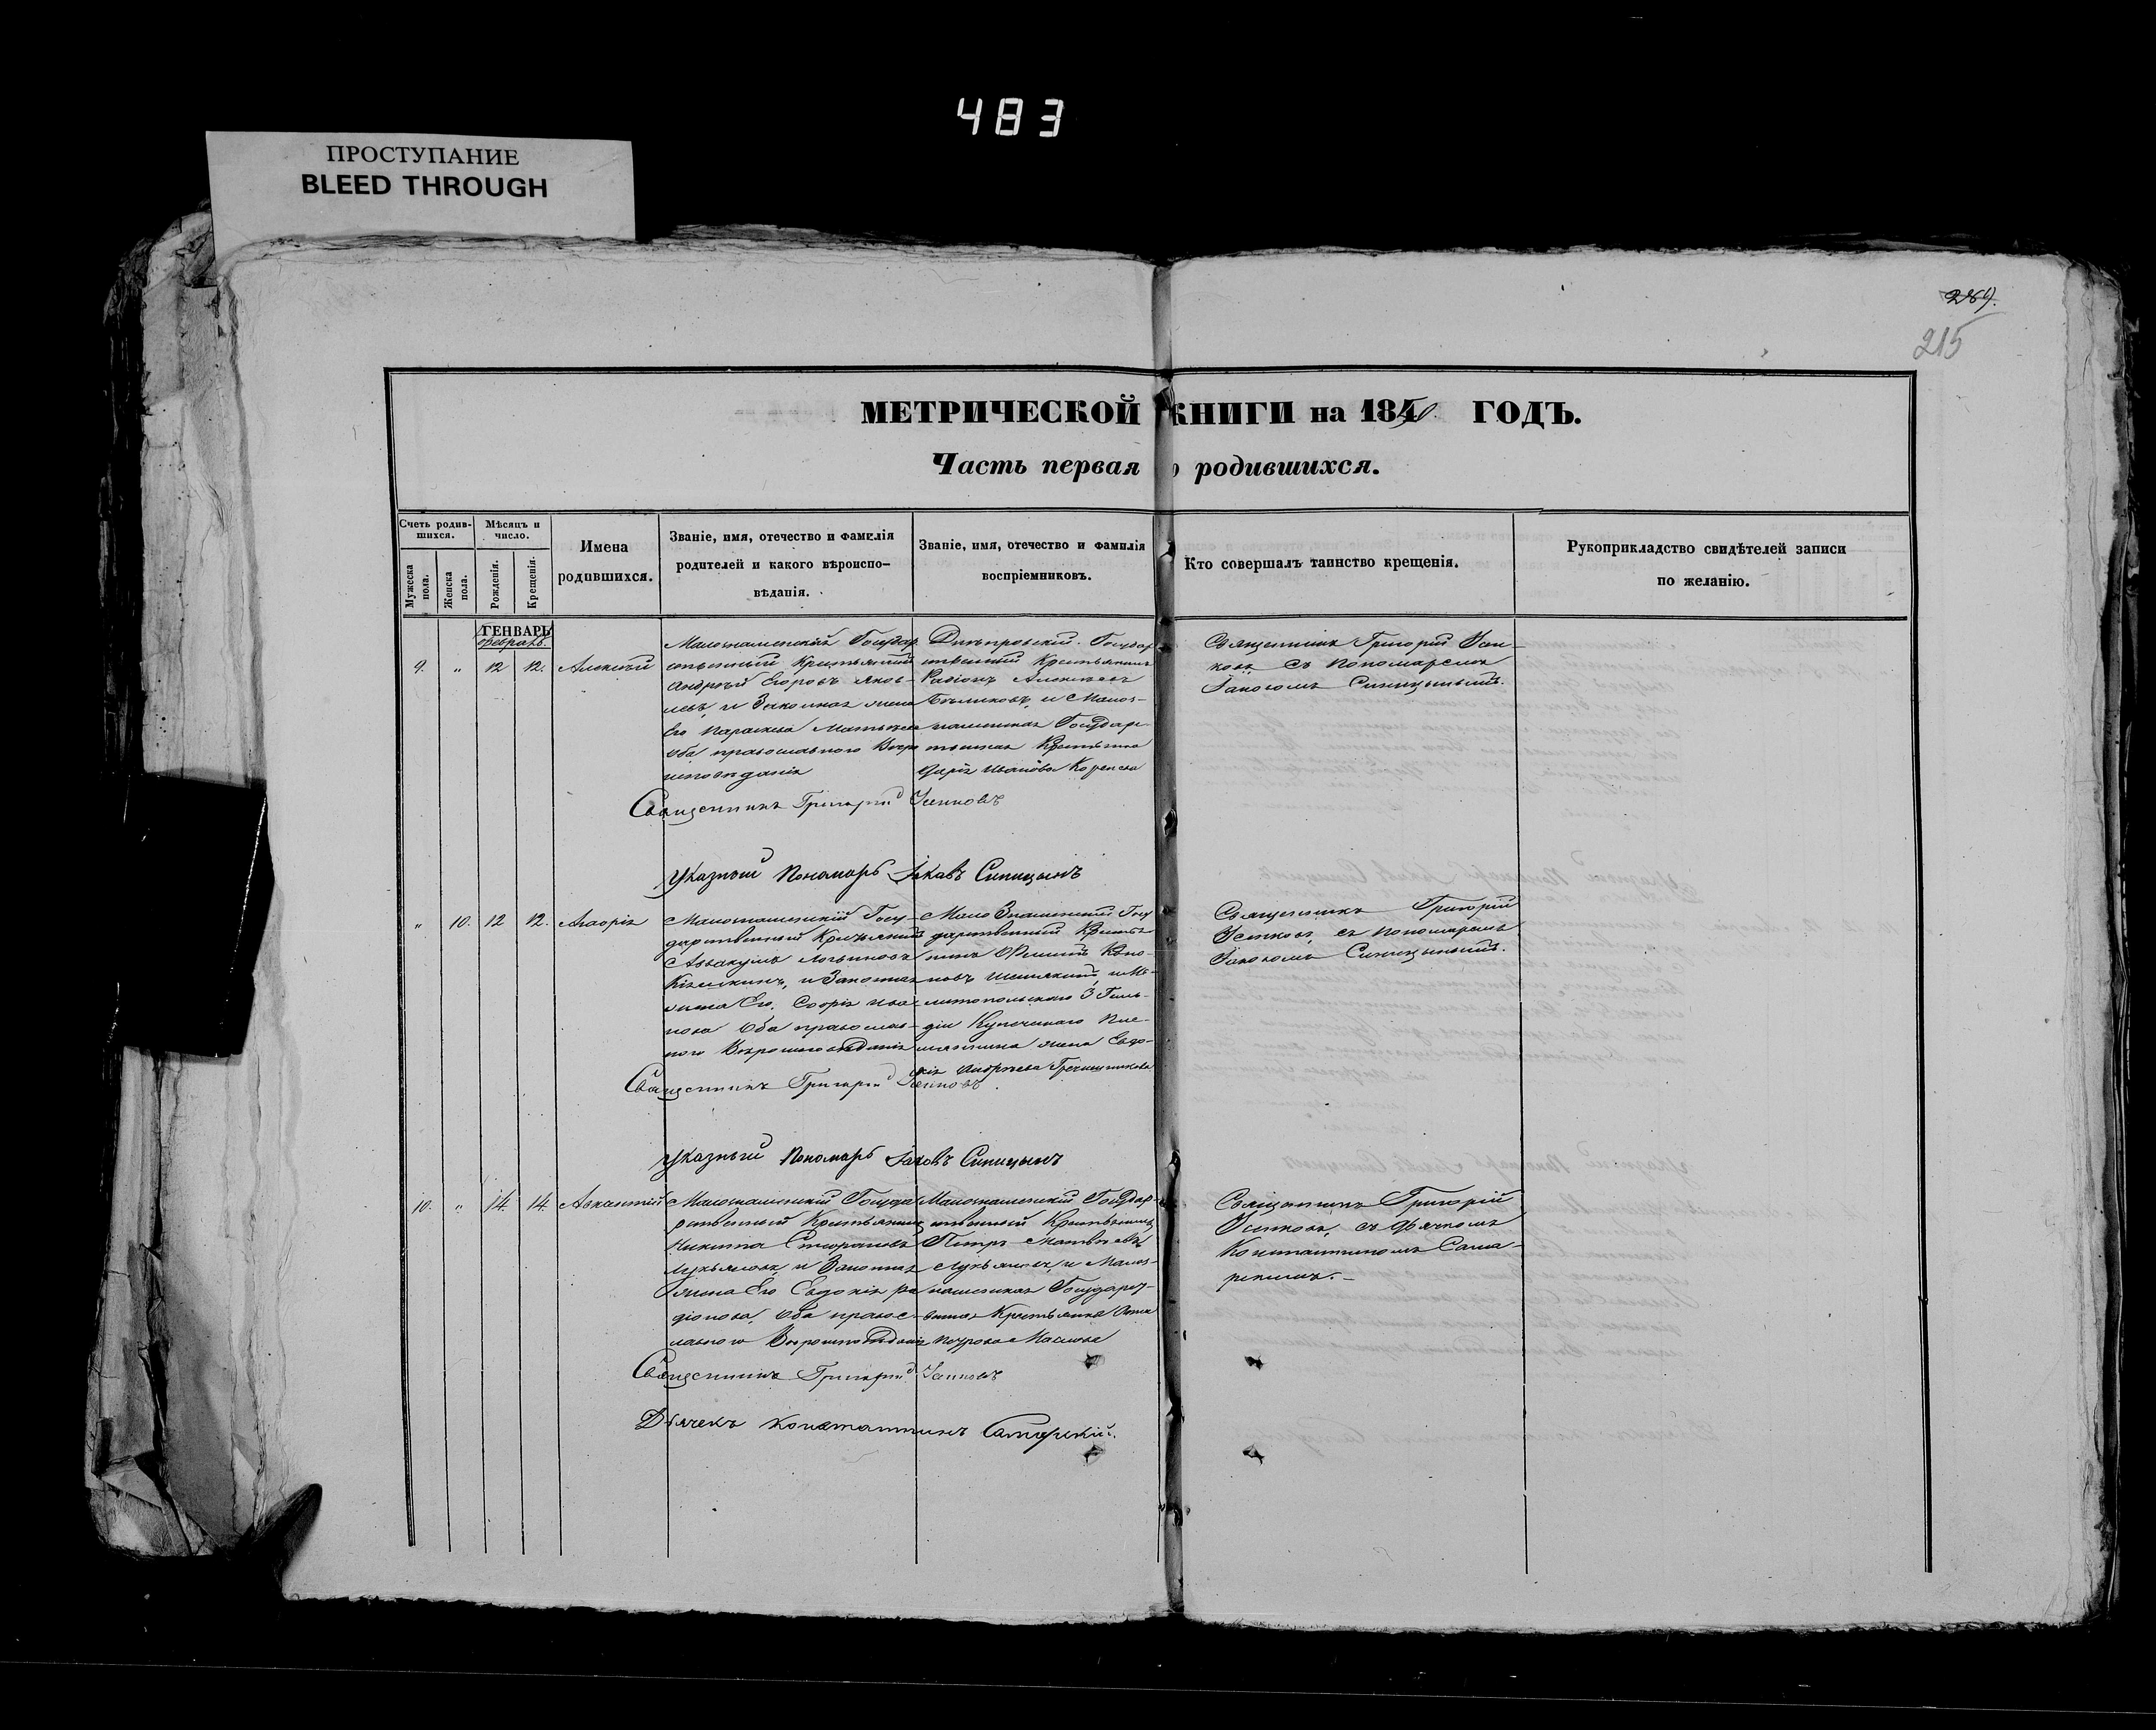 483
ПРОСТУПАНИЕ
BLEED THROUGH
289.
215
МЕТРИЧЕСКОЙ КНИГИ на 1850. ГОДЪ.
Часть первая о родившихся.
Счетъ родив-
шихся.
Мужеска пола.
Женска пола.
Мѣсяцъ и
число.
Рожденія.
Крещенія.
Имена
родившихся.
Званіе, имя, отечество и фамилія
родителей и какого вѣроиспо-
вѣданія.
Званіе, имя, отечество и фамилія
воспріемниковъ.
Кто совершалъ таинство крещенія.
Рукоприкладство свидѣтелей записи
по желанію.
ГЕНВАРЬ
Февраль.
9. " 12 12. Алексѣй
Малознаменскій Государ
ственный Крестьянинъ
Андрей Егоровъ Яков-
левъ, и Законная жена
Его Параскева Матвѣева
Оба православнаго Вѣро
исповѣданія
Днѣпровскій Государ
ственный Крестьянинъ
Родіонъ Алексѣевъ
Бѣликовъ, и Малоз-
наменская Государ-
ственная Крестьянка
Иванова
Священникъ Григорій Усти-
ковъ съ Пономаремъ
Іаковомъ Синицынымъ.
Священникъ Григорій
Указный Пономарь Іаковъ Синицынъ
" 10. 12 12.
Малознаменскій Госу-
дарственный Крестьянинъ
Аввакумъ Логвиновъ
и Законная
жена Его, Софія Ива-
нова Оба православ-
наго Вѣроисповѣданія
Мало Знаменскій Госу
дарственный Крестья
нинъ
и Ме-
литопольскаго 3 Гиль-
діи Купеческаго Пле-
мянника жена Евдо-
кія Андреева Гречишникова
Священникъ Григорій
съ Пономаремъ
Іаковомъ Синицынымъ.
Священникъ Григорій
Указный Пономарь Іаковъ Синицынъ
10. " 14. 14.
Малознаменскій Госуда
рственный Крестьянинъ
Никита
Лукьяновъ, и Законная
жена Его Евдокія Ро
діонова, Оба правос-
лавнаго Вѣроисповѣданія
Малознаменскій Государ-
ственный Крестьянинъ
Петръ Матвѣевъ
Лукьяновъ, и Малоз-
наменская Государст-
венная Крестьянка Анна
Маслова
Священникъ Григорій
съ Дьячкомъ
Константиномъ Сама-
рскимъ.
Священникъ Григорій
Дьячекъ Константинъ Самарскій.